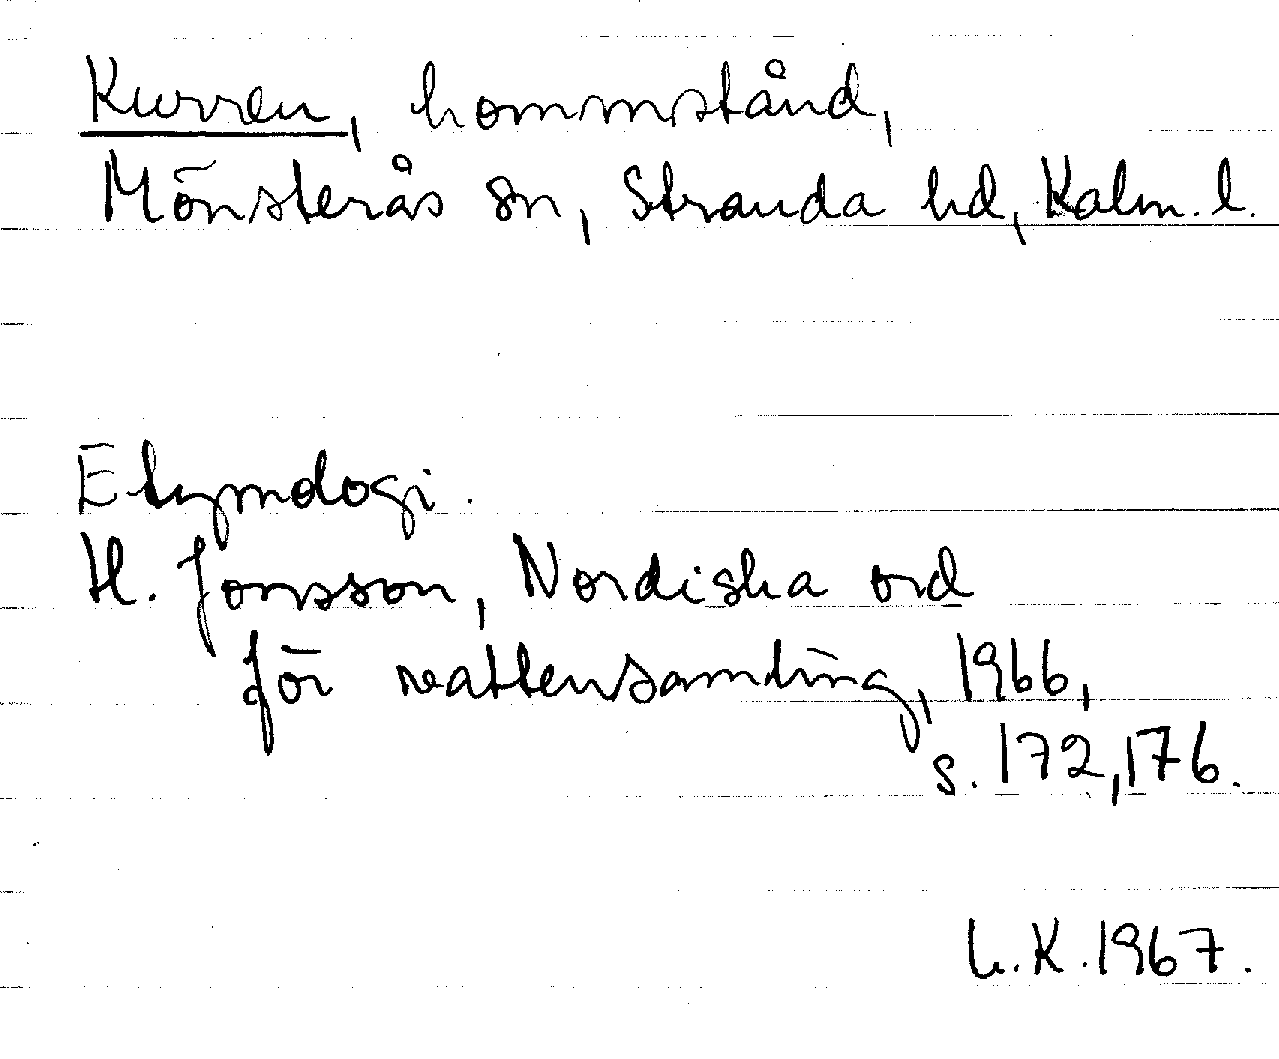 Kurren, hommstånd,
Mönsterås sn, Stranda hd, Kalm. l.
Etymologi.
H. Jonsson, Nordiska ord
för vattensamling, 1966,
s. 172, 176.
L.K. 1967.